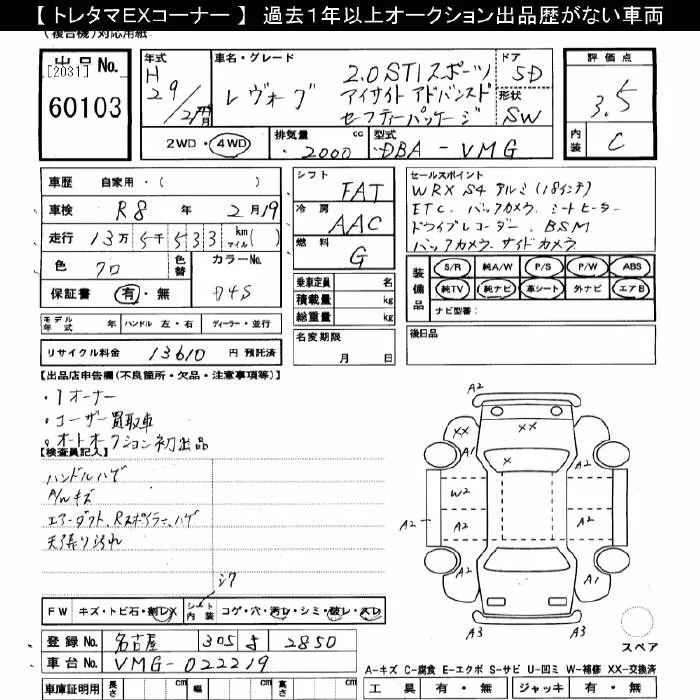 【 トレタマEXコーナー 】 過去1年以上オークション出品歴がない車両
(複合機)対応用紙
出品No. [2031] 60103
年式 H 29/2 月
車名・グレード レヴォーグ 2.0STIスポーツ
アイサイト アドバンスド
セーフティパッケージ
ドア 5D
形状 SW
評価点 3.5
内装 C
2WD・4WD
排気量 2000 cc
型式 DBA-VMG
車歴 自家用・( )
車検 R8 年 2月19
走行 13万5千533 km マイル( )
色 クロ 色替 カラーNo. D4S
保証書 有・無
シフト FAT
冷房 AAC
燃料 G
乗車定員 名
積載量 kg
総重量 kg
名変期限 月 日
セールスポイント
WRX S4 アルミ(18インチ)
ETC. バックカメラ. シートヒーター
ドライブレコーダー. BSM
バックカメラ. サイドカメラ
装備品 S/R 純A/W P/S P/W ABS
純TV 純ナビ 革シート 外ナビ エアB
ナビ型番:
後日品
モデル年式 年 ハンドル 左・右 ディーラー・並行
リサイクル料金 13610 円 預託済
【出品店申告欄(不良箇所・欠品・注意事項等)】
・1オーナー
・ユーザー買取車
・オートオークション初出品
【検査員記入】
ハンドルハゲ
A/Wキズ
エアーダクト、Rスポイラー、ハゲ
天張り汚れ
シワ
FW キズ・トビ石・割レX
シート内装 コゲ・穴・汚レ・シミ・破レ・スレ
A2
XX XX
A1 X
W2
A2 A2 A2
A2 A1
A3 A3
スペア
登録No. 名古屋 305 す 2850
車台No. VMG-022219
A-キズ C-腐食 E-エクボ S-サビ U-凹ミ W-補修 XX-交換済
車庫証明用 長さ cm 幅 cm 高さ cm
工具 有・無 ジャッキ 有・無